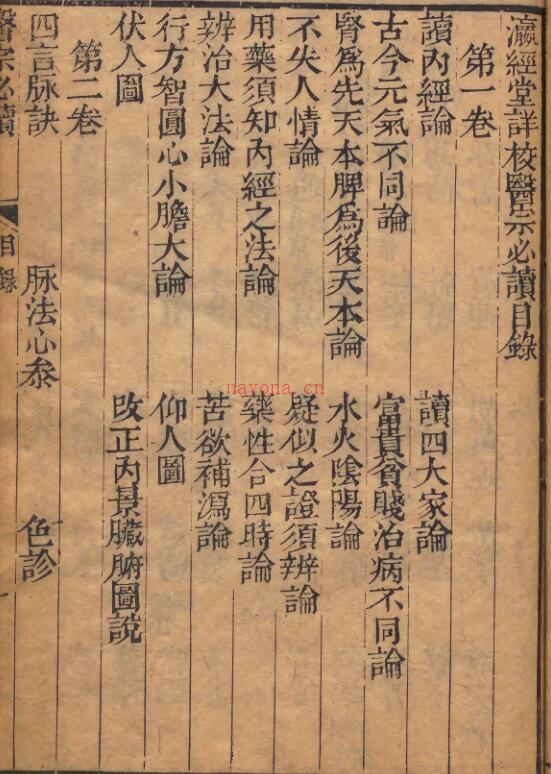 瀛經堂詳校醫宗必讀目錄
第一卷
讀內經論
讀四大家論
古今元氣不同論
富貴貧賤治病不同論
腎為先天本脾為後天本論
水火陰陽論
不失人情論
疑似之證須辨論
用藥須知內經之法論
藥性合四時論
辨治大法論
苦欲補瀉論
行方智圓心小膽大論
仰人圖
伏人圖
改正內景臟腑圖說
第二卷
四言脉訣
脉法心叅
色診
醫宗必讀
目錄
一
nayona.cn